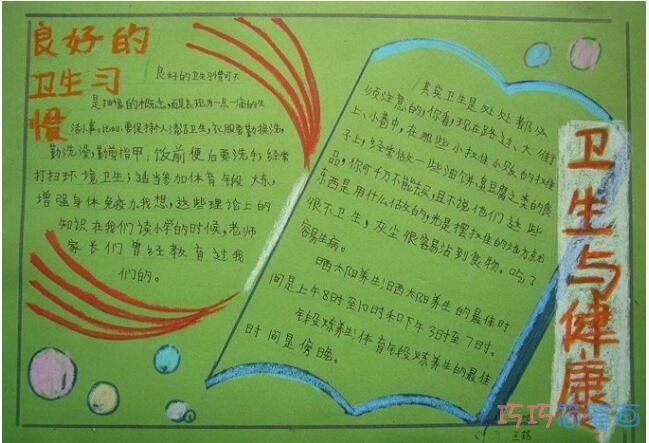 良好的
卫生习
惯
良好的卫生习惯可不
是抽象的概念,而是表现为一点一滴的生
活小事。比如:要保持个人清洁卫生,衣服要勤换洗,
勤洗澡,勤剪指甲,饭前便后要洗手,经常
打扫环境卫生,适当参加体育锻炼,
增强身体免疫力我想,这些理论上的
知识在我们读小学的时候,老师
家长们曾经教育过我
们的。
其实卫生是处处都必
须注意的,你看,现在路边、大街
上、小巷中,在那些小摊小贩的摊
子上,经常做一些油饼臭豆腐之类的食
品,你可千万不能买,且不说他们这些
东西是用什么做的,光是摆摊的地方就
很不卫生,灰尘很容易沾到食物。吃了
容易生病。
晒太阳养生!晒太阳养生的最佳时
间是上午8时至10时和下午3时至7时。
锻炼养生!体育锻炼养生的最佳
时间是傍晚。
卫生与健康
巧巧简笔画